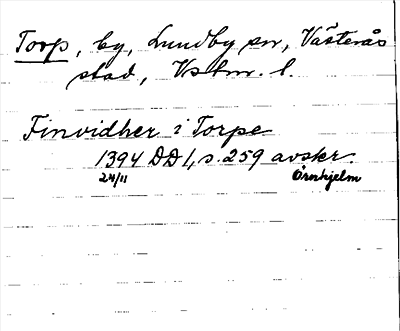 Torp, by, Lundby sn, Västerås
stad, Vstm. l.
Finvidher i Torpe
1394 DD 1, s. 259 avskr.
24/11 Örnhjelm